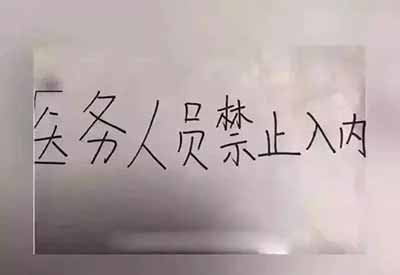 医务人员禁止入内